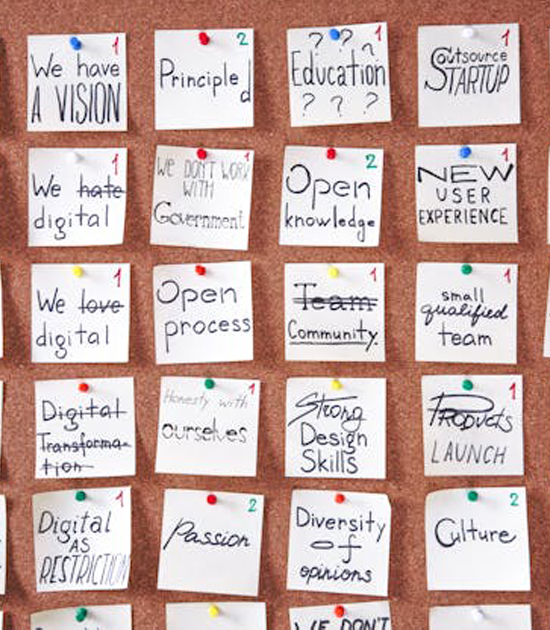 We have
A VISION
1
Principled
2
? ? ?
Education
? ? ?
1
Outsource
STARTUP
1
We hate
digital
1
WE DON'T WORK
WITH
Government
1
Open
knowledge
2
NEW
USER
EXPERIENCE
1
We love
digital
1
Open
process
Team
Community
1
small
qualified
team
1
Digital
Transforma-
tion
Honesty with
ourselves
1
Strong
Design
Skills
Products
LAUNCH
1
Digital
AS
RESTRICTION
1
Passion
2
Diversity
of
opinions
Culture
2
WE DON'T